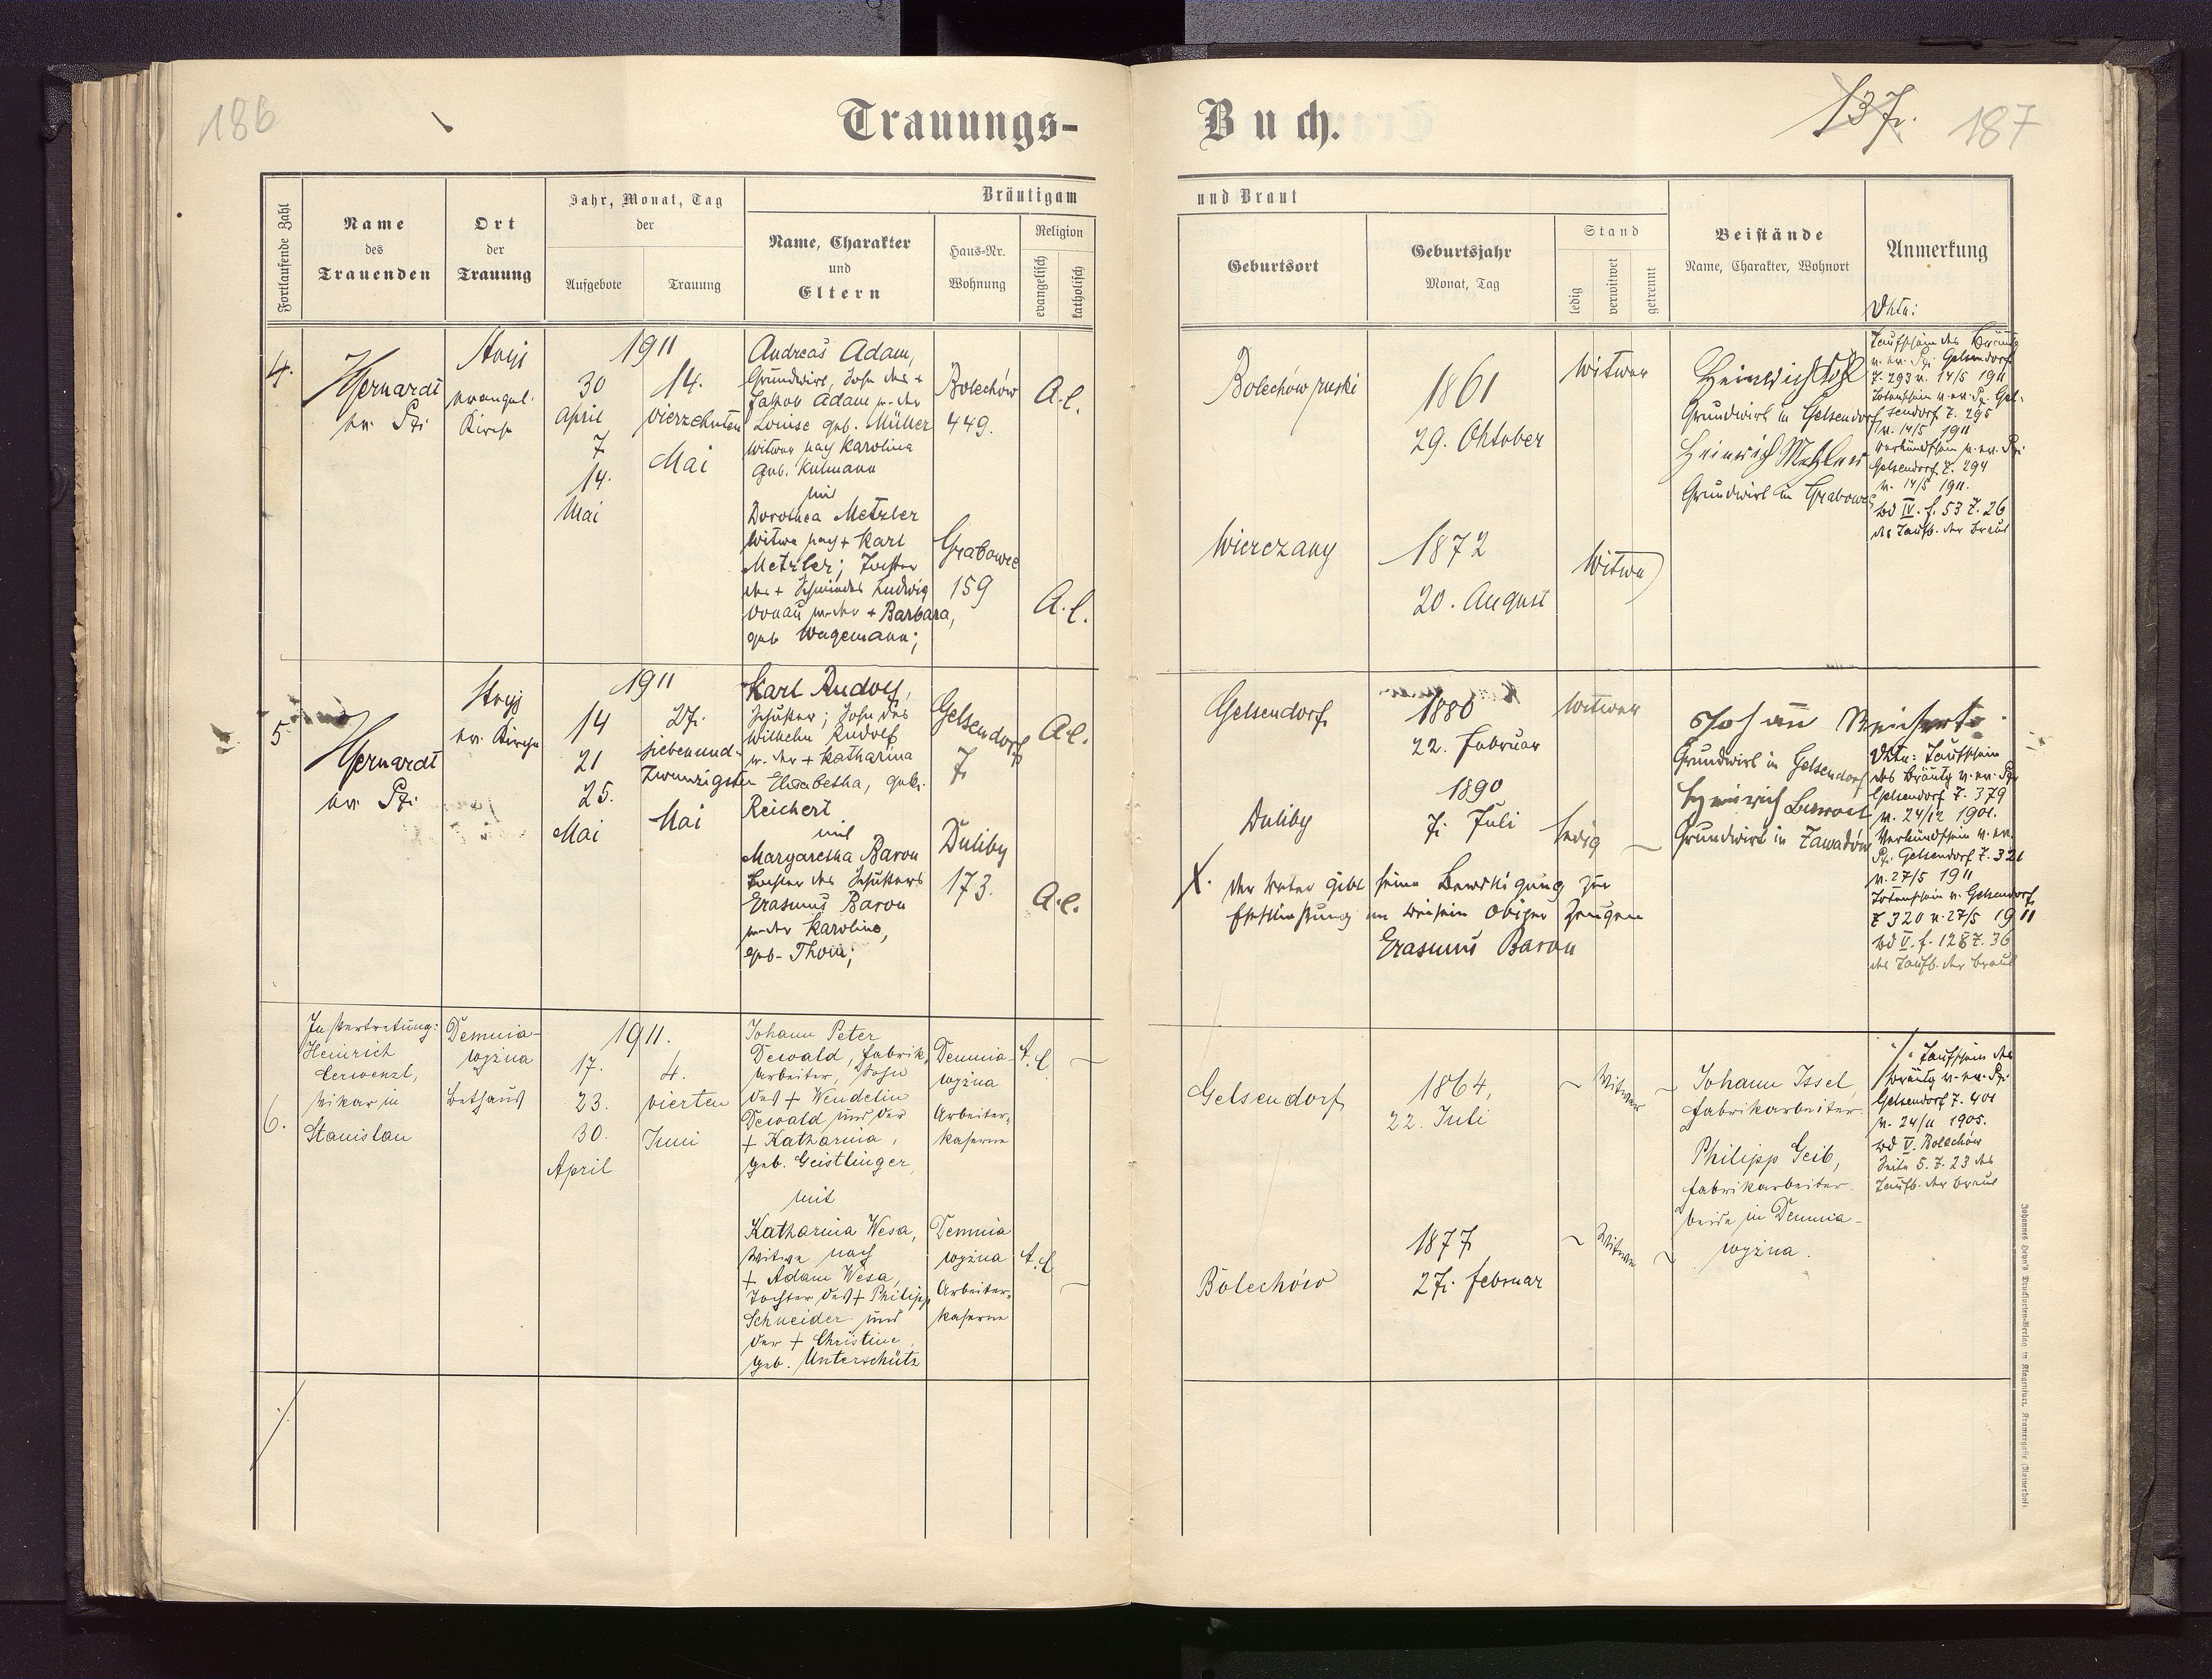 186
Trauungs-
Buch.
137.
187
Fortlaufende Zahl
Name
des
Trauenden
Ort
der
Trauung
Jahr, Monat, Tag
der
Aufgebote
Trauung
Bräutigam
Name, Charakter
und
Eltern
Haus-Nr.
Wohnung
Religion
evangelisch
katholisch
und Braut
Geburtsort
Geburtsjahr
Monat, Tag
Stand
ledig
verwitwet
getrennt
Beistände
Name, Charakter, Wohnort
Anmerkung
4.
ev. Pfr.
Stryj
evangel.
Kirche
1911
30
April
7
14.
Mai
14.
vierzehnten
Mai
Andreas Adam,
Grundwirt, Sohn des +
Jakob Adam u. der
Louise geb. Müller
Witwer nach Karolina
geb. Kulmann
mit
Dorothea Metzler
Witwe nach + Karl
Metzler; Tochter
des + Ludwig
Donau u. der + Barbara,
geb. Wagemann;
Bolechów
449.
Grabowce
159
A.C.
A.C.
Bolechów ruski
Wierczany
1861
29. Oktober
1872
20. August
Witwer
Witwe
Heinrich
Grundwirt in Gelsendorf
Heinrich Metzler
Grundwirt in Grabowce
Taufschein des Bräutg
v. ev. Pfr. Gelsendorf
Z. 293 v. 14/5 1911
Totenschein v. ev. Pfr. Gel-
sendorf Z. 295
v. 14/5 1911
Verkündschein v. ev. Pfr.
Gelsendorf Z. 294
v. 14/5 1911.
Bd IV. f. 53 Z. 26
des Taufb. der Braut
5.
ev. Pfr.
Stryj
ev. Kirche
1911
14
21
25.
Mai
27.
siebenund-
zwanzigsten
Mai
Karl Rudolf,
Schuster; Sohn des
Wilhelm Rudolf
u. der + Katharina
Elisabetha, geb.
Reichert
mit
Margaretha Baron
Tochter des Schusters
Erasmus Baron
u. der Karoline,
geb. Thom;
Gelsendorf
7.
Duliby
173.
A.C.
A.C.
Gelsendorf
Duliby
1880
22. Februar
1890
7. Juli
Witwer
ledig
X. Der Vater gibt seine Bewilligung zur
Eheschließung im Beisein obiger Zeugen
Erasmus Baron
Johann Reichert
Grundwirt in Gelsendorf
Heinrich
Grundwirt in Zawadów
Taufschein
des Bräutg v. ev. Pfr
Gelsendorf Z. 379
v. 24/12 1901.
Verkündschein v. ev.
Pfr. Gelsendorf Z. 321
v. 27/5 1911
Totenschein v. Gelsendorf
Z 320 v. 27/5 1911
Bd V. f. 128 Z. 36
des Taufb. der Braut
6.
In Vertretung:
Heinrich
Vikar in
Stanislau
Demnia-
wyżna
Bethaus
1911.
17.
23.
30.
April
4.
vierten
Juni
Johann Peter
Dewald, Fabrik-
arbeiter, Sohn
des + Wendelin
Dewald und der
+ Katharina,
geb. Geistlinger,
mit
Katharina Wesa,
Witwe nach
+ Adam Wesa,
Tochter des + Philipp
Schneider und
der + Christine,
geb. Unterschütz
Demnia-
wyżna
Arbeiter-
kaserne
Demnia
wyżna
Arbeiter-
kaserne
A.C.
A.C.
Gelsendorf
Bolechów
1864,
22. Juli
1877
27. Februar
Witwer
Witwe
Johann Issel,
Fabrikarbeiter.
Philipp Geib,
Fabrikarbeiter.
beide in Demnia-
wyżna.
./. Taufschein des
Bräutg v. ev. Pfr.
Gelsendorf Z. 401
v. 24/11 1905.
Bd V. Bolechów
Seite 5. Z. 23 des
Taufb. der Braut
./.